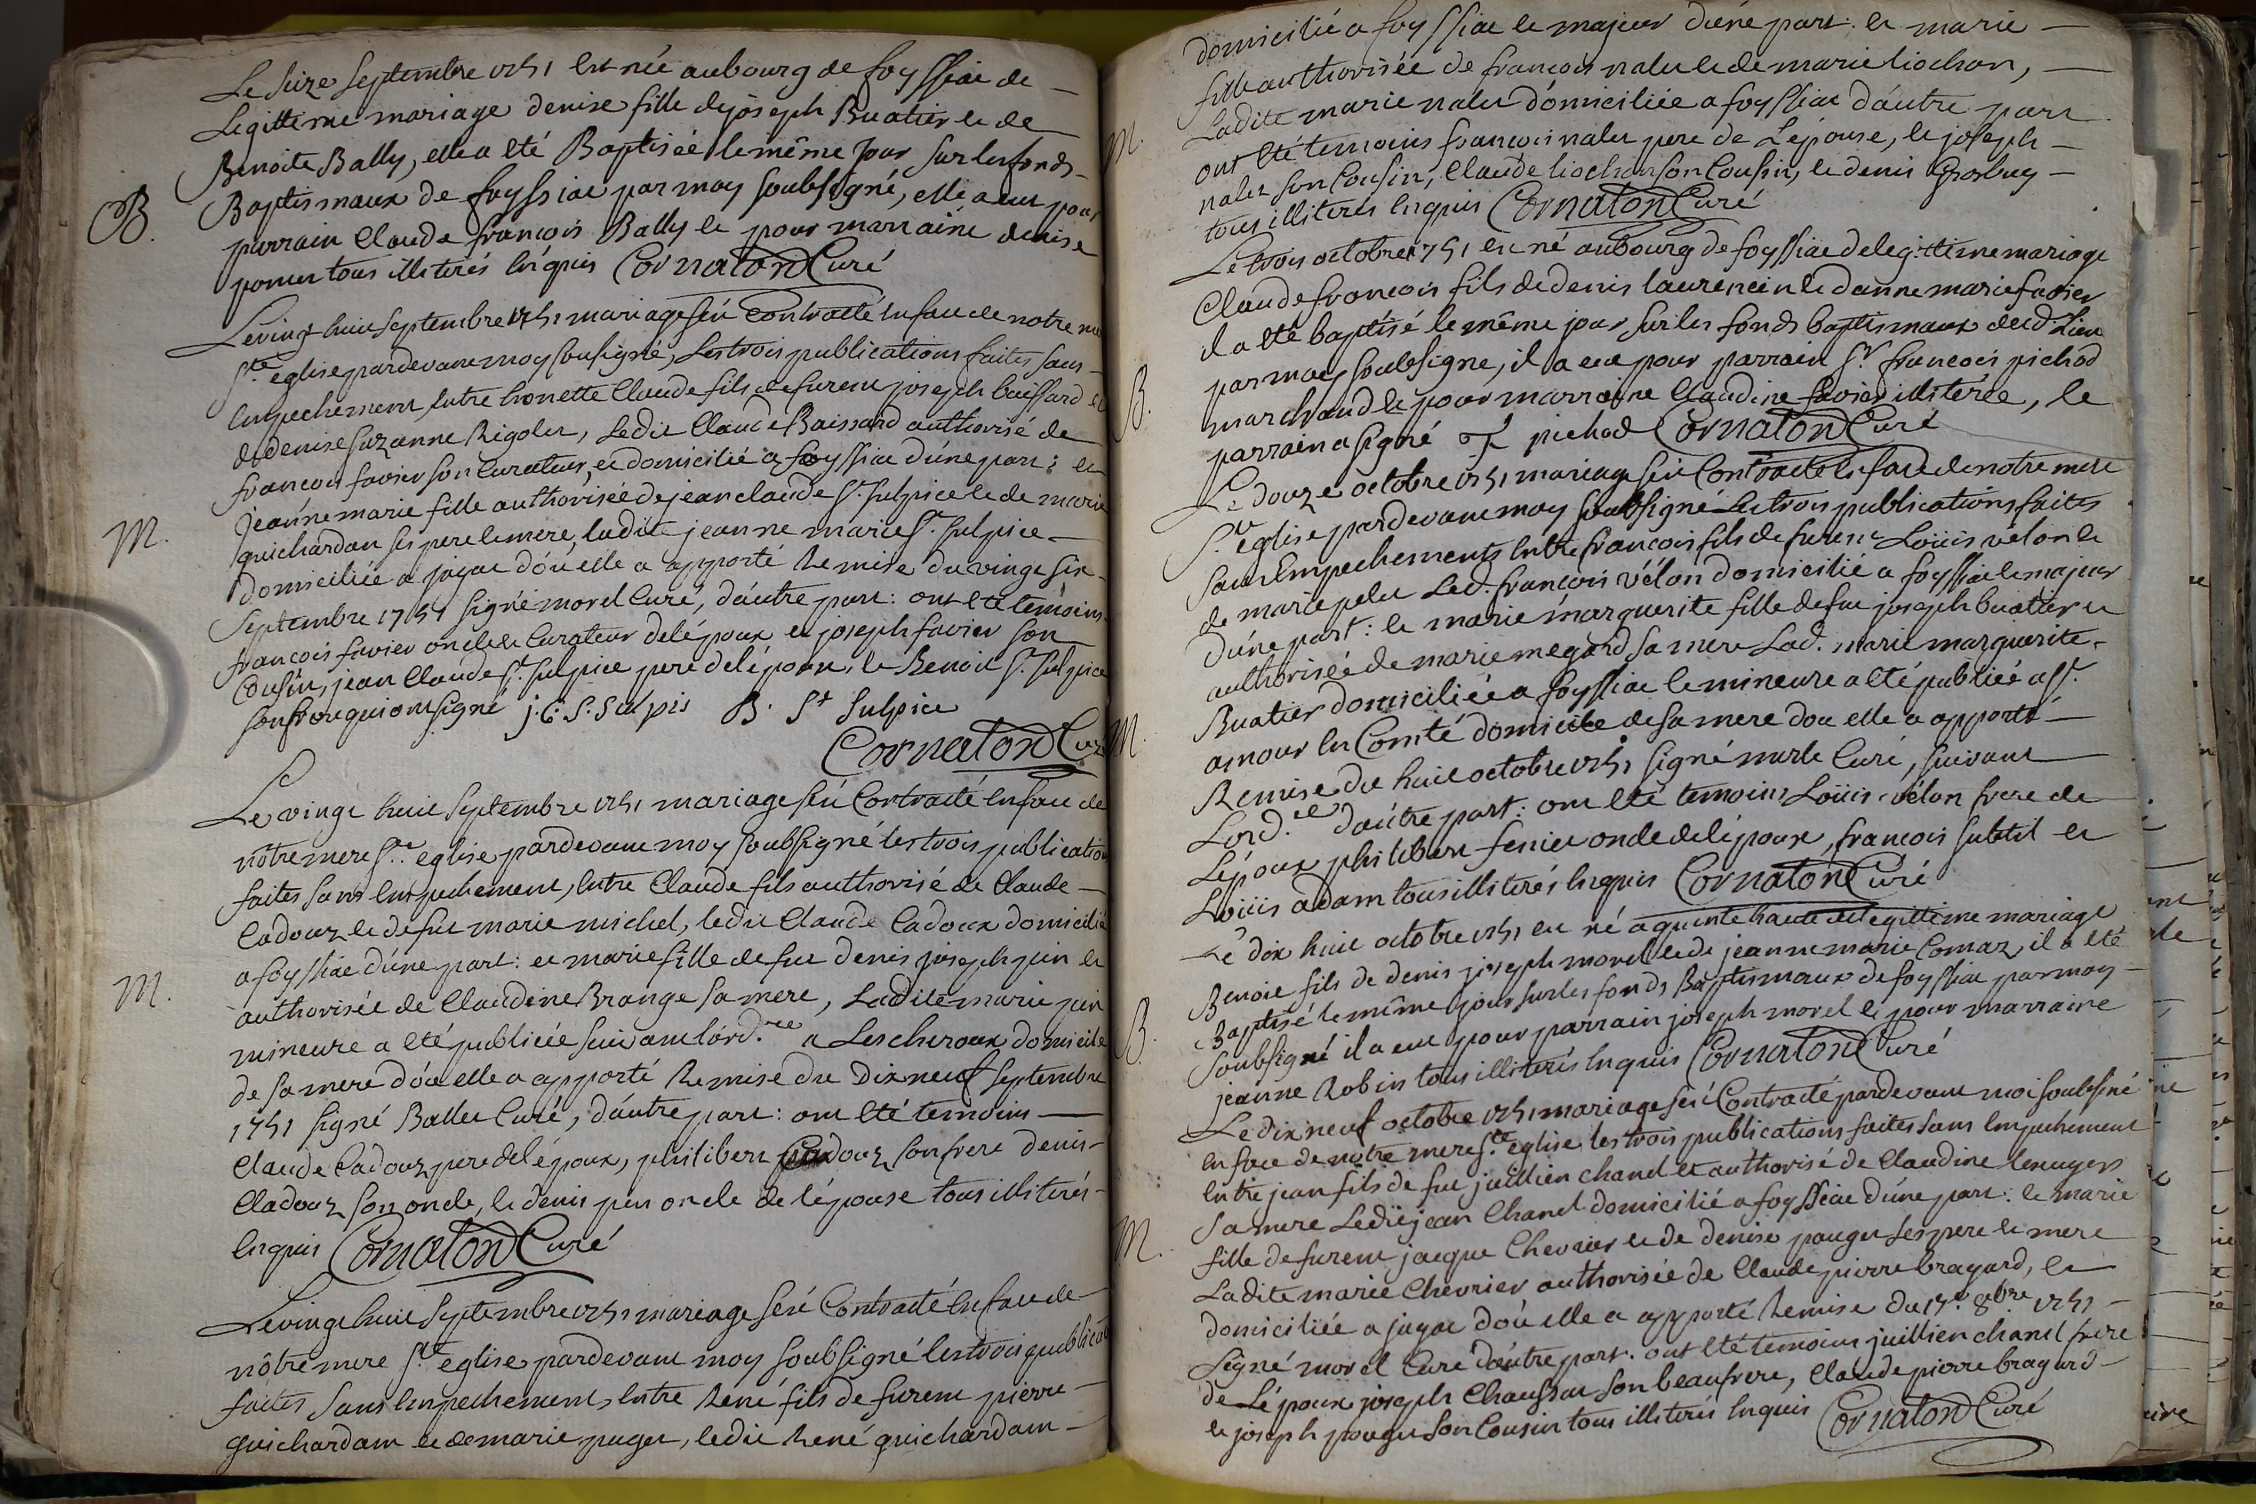 Le seize septembre 1751 est née au bourg de foyssiac de
Legittime mariage denise fille de joseph Buatier et de
Benoite Bally, elle a eté Baptisée le même jour sur les fonds
B.
Baptismaux de foyssiac par moy soubsigné, elle a eut pour
parrain Claude françois Bally et pour marraine denise
tous illiterés enquis Cornaton Curé
Le vingt huit septembre 1751 mariage feu contracté en face de notre mere
Ste eglise pardevant moy sousigné, les trois publications faites sans
empechement entre honette Claude fils de furent joseph buissard et
de denise suzanne Rigolet, ledit Claude Baissard authorisé de
françois favier son Curateur, et domicilié a foyssiac d'une part; et
M.
jeanne marie fille authorisée de jean claude St. sulpice et de marie
guichardan ses pere et mere, ladite jeanne marie St. sulpice
domiciliée a jayac d'où elle a apporté Remise du vingt six
septembre 1751 signé morel Curé, d'autre part: ont eté temoins
françois favier oncle et Curateur de lépoux et joseph favier son
Cousin, jean Claude St. sulpice pere de lépouse, et Benoit St. sulpice
son frere qui ont signé j. C. S. Sulpis B. St Sulpice
Cornaton Curé
Le vingt huit septembre 1751 mariage feu Contracté en face de
nôtre mere Ste eglise pardevant moy soubsigné les trois publications
faites sans empechement, entre Claude fils authorisé de Claude
Cadouz et de fut marie michel, ledit Claude Cadoux domicilié
a foyssiac d'une part: et marie fille de fut denis joseph pin et
M.
authorisée de Claudine Brange sa mere, Ladite marie pin
mineure a eté publiée suivant lord.ce a Lescheroux domicile
de sa mere d'où elle a apporté Remise du Dixneuf septembre
1751 signé Ballet Curé, d'autre part: ont eté temoins
Claude Cadouz pere de lépoux, philibert Cadouz son frere denis
Cladouz son oncle, et denis pin oncle de lépouse tous illiterés
enquis Cornaton Curé
Le vingt huit septembre 1751 mariage feu Contracté en face de
nôtre mere Ste eglise pardevant moy soubsigné les trois publicat
faites sans empechement, entre René fils de furent pierre
guichardam et de marie puget, ledit René guichardam
domicilié a foyssiac et majeur d'une part: et marie
fille authorisée de françois nalet et de marie liochon,
M.
Ladite marie nalet domiciliée a foyssiac d'autre part
ont eté temoins françois nalet pere de Lépouse, et joseph
nalet son Cousin, Claude liochon son Cousin, et denis Grosbuy
tous illiterés enquis Cornaton Curé
Le trois octobre 1751 est né au bourg de foyssiac de legittime mariage
Claude françois fils de denis laurencin et danne marie favier
il a eté baptisé le même jour sur les fonds baptismaux dud. Lieu
B.
par moy soubsigné, il a eut pour parrain Sr françois pichod
marchand et pour marraine Claudine favier illiterée, le
parrain a signé pichod Cornaton Curé
Le douze octobre 1751 mariage feu Contracté en face de notre mere
Ste eglise pardevant moy soubsigné les trois publications faites
sans Empechements entre françois fils de furent Loüis vélon et
de marie Led. françois vélon domicilié a foyssiac et majeur
d'une part: et marie marguerite fille de fut joseph buatier et
authorisée de marie megard sa mere Lad. marie marguerite
Buatier domiciliée a foyssiac et mineure a eté publiée a St.
M.
amour en Comté domicile de sa mere dou elle a apporté
Remise du huit octobre 1751 signé Curé, suivant
Lord.ce d'autre part: ont eté temoins Loüis vélon frere de
Lépoux philibert oncle de lépoux, françois subtil et
Loüis adam tous illiterés enquis Cornaton Curé
Le dix huit octobre 1751 est né a quinte haute de legittime mariage
Benoit fils de denis joseph morel et de jeanne marie Comaz, il a eté
B.
Baptisé le même jour sur les fonds Baptismaux de foyssiac par moy
soubsigné il a eut pour parrain joseph morel et pour marraine
jeanne Robin tous illiterés enquis Cornaton Curé
Le dixneuf octobre 1751 mariage feu Contracté pardevant moi soubsiné
en face de nôtre mere Ste eglise les trois publications faites sans empechement
entre jean fils de fut juillien Chanel et authorisé de Claudine
sa mere Ledit jean Chanel domicilié a foyssiac d'une part: et marie
M.
fille de furent jacque Chevrier et de denise pauget ses pere et mere
Ladite marie Chevrier authorisée de Claude pierre bragard, et
domiciliée a jayac d'où elle a apporté Remise du 17e 8bre 1751
signé morel Curé d'autre part. ont eté temoins juillien chanel frere
de Lépoux joseph son beaufrere, Claude pierre bragard
et joseph pouget son Cousin tous illiterés enquis Cornaton Curé